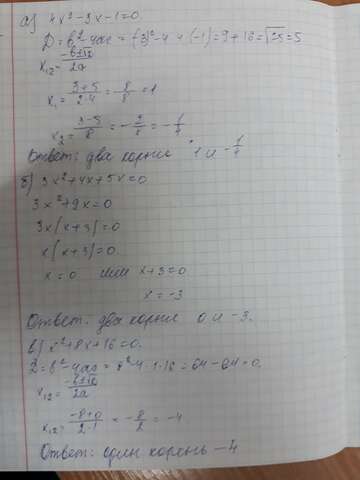 а) 4x² - 3x - 1 = 0
D = b² - 4ac = (-3)² - 4 · (-1) = 9 + 16 = √25 = 5
x₁₂ = (-b ± √D)/2a
x₁ = (3+5)/(2·4) = 8/8 = 1
x₂ = (3-5)/8 = -2/8 = -1/4
Ответ: два корня 1 и -1/4
б) 3x² + 4x + 5x = 0
3x² + 9x = 0
3x(x+3) = 0
x(x+3) = 0
x = 0 или x+3 = 0
x = -3
Ответ: два корня 0 и -3.
в) x² + 8x + 16 = 0.
D = b² - 4ac = 8² - 4 · 1 · 16 = 64 - 64 = 0.
x₁₂ = (-b ± √D)/2a
x₁₂ = (-8+0)/(2·1) = -8/2 = -4
Ответ: один корень -4